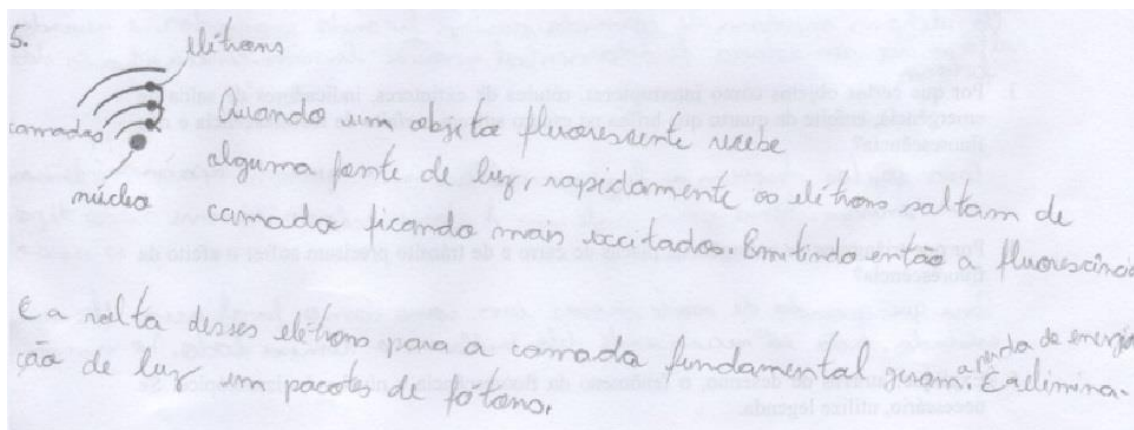 5.
elétrons
camadas
núcleo
Quando um objeto fluorescente recebe
alguma fonte de luz, rapidamente os elétrons saltam de
camada ficando mais excitados. Emitindo então a fluorescência
E a volta desses elétrons para a camada fundamental geram a perda de energia
E a elimina-
ção de luz em pacotes de fótons.